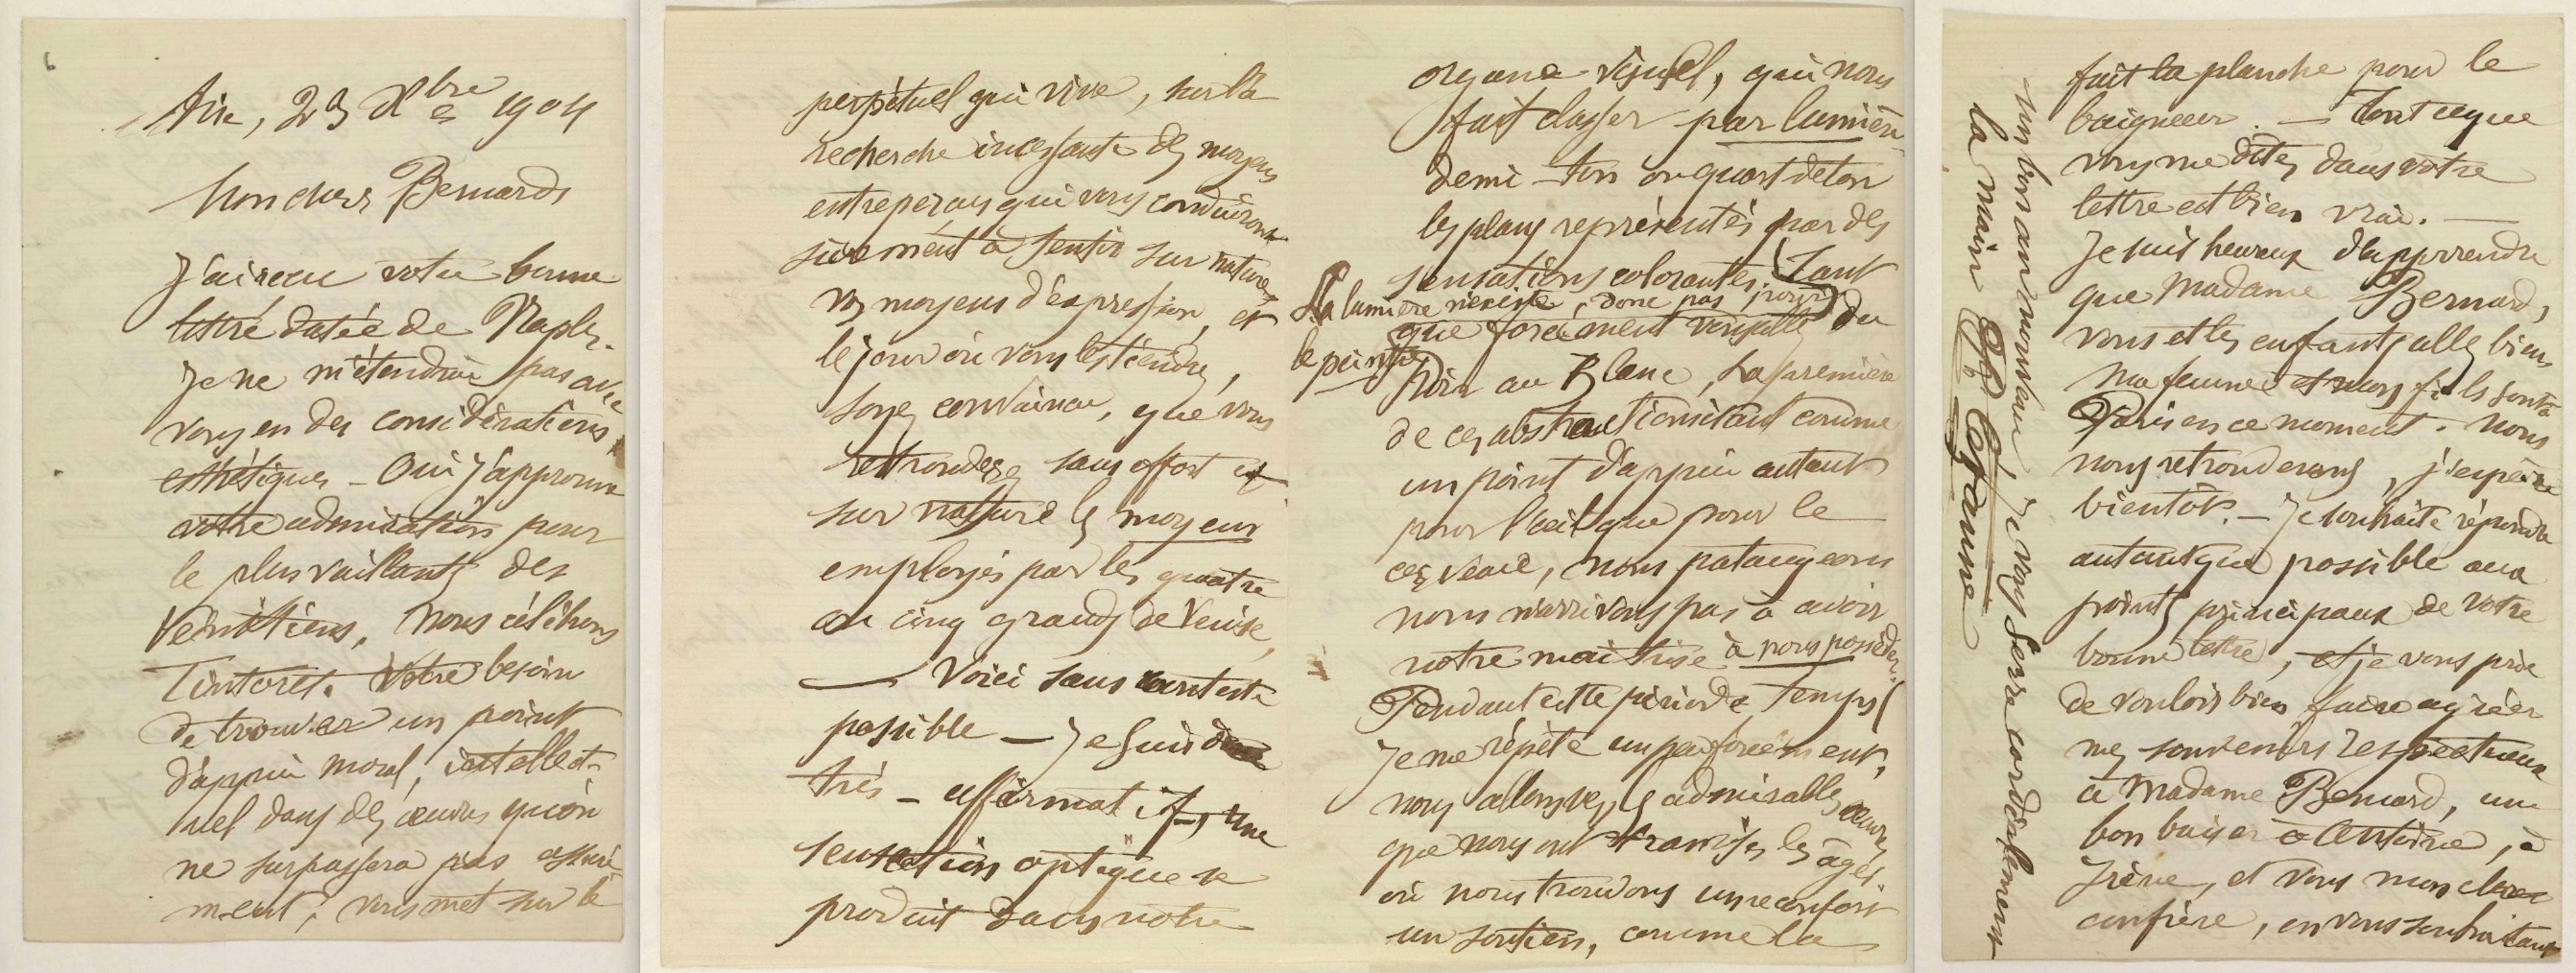 Aix, 23 Xbre 1904
Mon cher Bernard
J'ai reçu votre bonne
lettre datée de Naples.
Je ne m'étendrai pas avec
vous en des considérations
esthétiques – Oui j'approuve
votre admiration pour
le plus vaillants des
Vénitiens, nous célébrons
Tintoret. Votre besoin
de trouver un point
d'appui moral, intellect-
uel dans des œuvres qu'on
ne surpassera pas assuré-
ment, vous met sur le
perpétuel qui vive, sur la
recherche incessante des moyens
entreperçus qui vous conduiront
surement à sentir sur nature,
vos moyens d'expression, et
le jour où vous les tiendrez,
soyez convaincu, que vous
retrouverez sans effort et
sur nature les moyens
employés par les quatre
ou cinq grands de Venise,
— Voici sans conteste
possible – Je suis
très – affirmatif, une
sensation optique se
produit dans notre
organe visuel, qui nous
fait classer par lumière
demi-ton ou quart de ton
les plans représentés par des
sensations colorantes. (Tant
La lumière n'existe, donc pas pour
le peintre
que forcément vous allez du
Noir au Blanc, La première
de ces abstractions étant comme
un point d'appui autant
pour l'œil que pour le
cerveau, nous pataugeons
nous n'arrivons pas à avoir
notre maîtrise à nous posséder.
Pendant cette période, temps (
Je me répète un peu forcément,
nous allons vers les admirables œuvres
que nous ont transmises les âges,
où nous trouvons un reconfort
un soutien, comme la
fait la planche pour le
baigneur. – Tout ce que
vous me dites dans votre
lettre est bien vrai. —
Je suis heureux d'apprendre
que Madame Bernard,
vous et les enfants allez bien,
Ma femme et mon fils sont à
Paris en ce moment. Nous
nous retrouverons, j'espère
bientôt. – Je souhaite répondre
autant que possible aux
points principaux de votre
bonne lettre, et je vous prie
de vouloir bien faire agréer
mes souvenirs respectueux
à Madame Bernard, un
bon baiser à Antoine, à
Irène, et vous mon cher
confrère, en vous souhaitant
une bon an nouveau, je vous serre cordialement
la main P. Cézanne